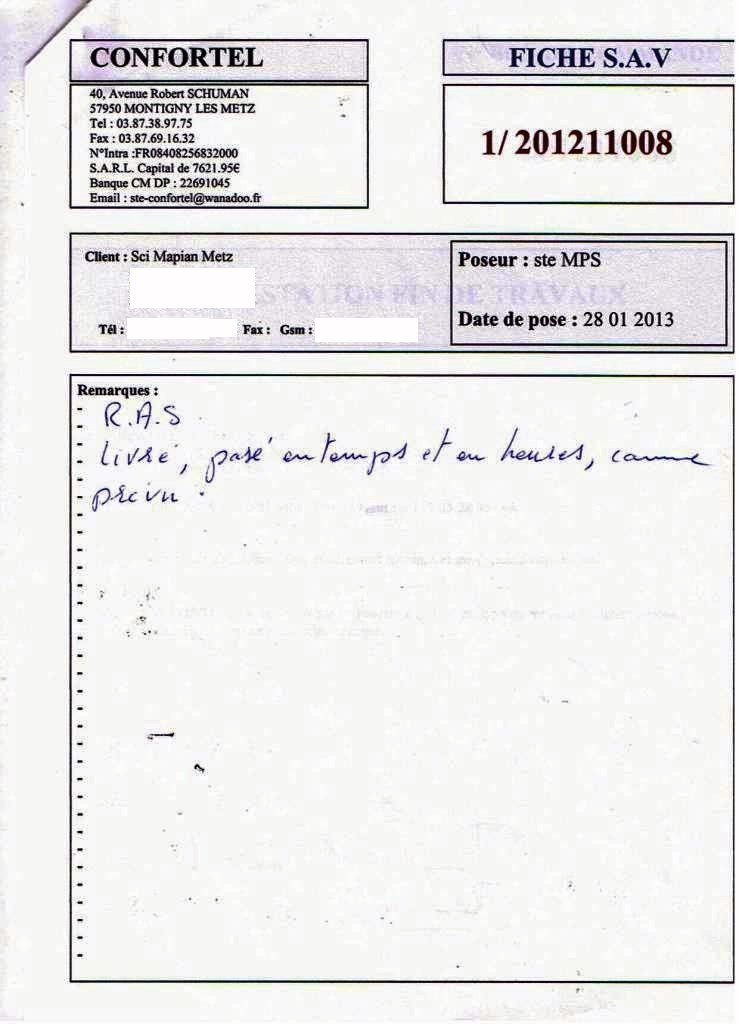 CONFORTEL
40, Avenue Robert SCHUMAN
57950 MONTIGNY LES METZ
Tel : 03.87.38.97.75
Fax : 03.87.69.16.32
N°Intra :FR08408256832000
S.A.R.L. Capital de 7621.95€
Banque CM DP : 22691045
Email : ste-confortel@wanadoo.fr
FICHE S.A.V
1/ 201211008
Client : Sci Mapian Metz
Tél : Fax : Gsm :
Poseur : ste MPS
Date de pose : 28 01 2013
STATION FIN DE TRAVAUX
Remarques :
R.A.S.
livré, posé en temps et en heures, comme
prévu.